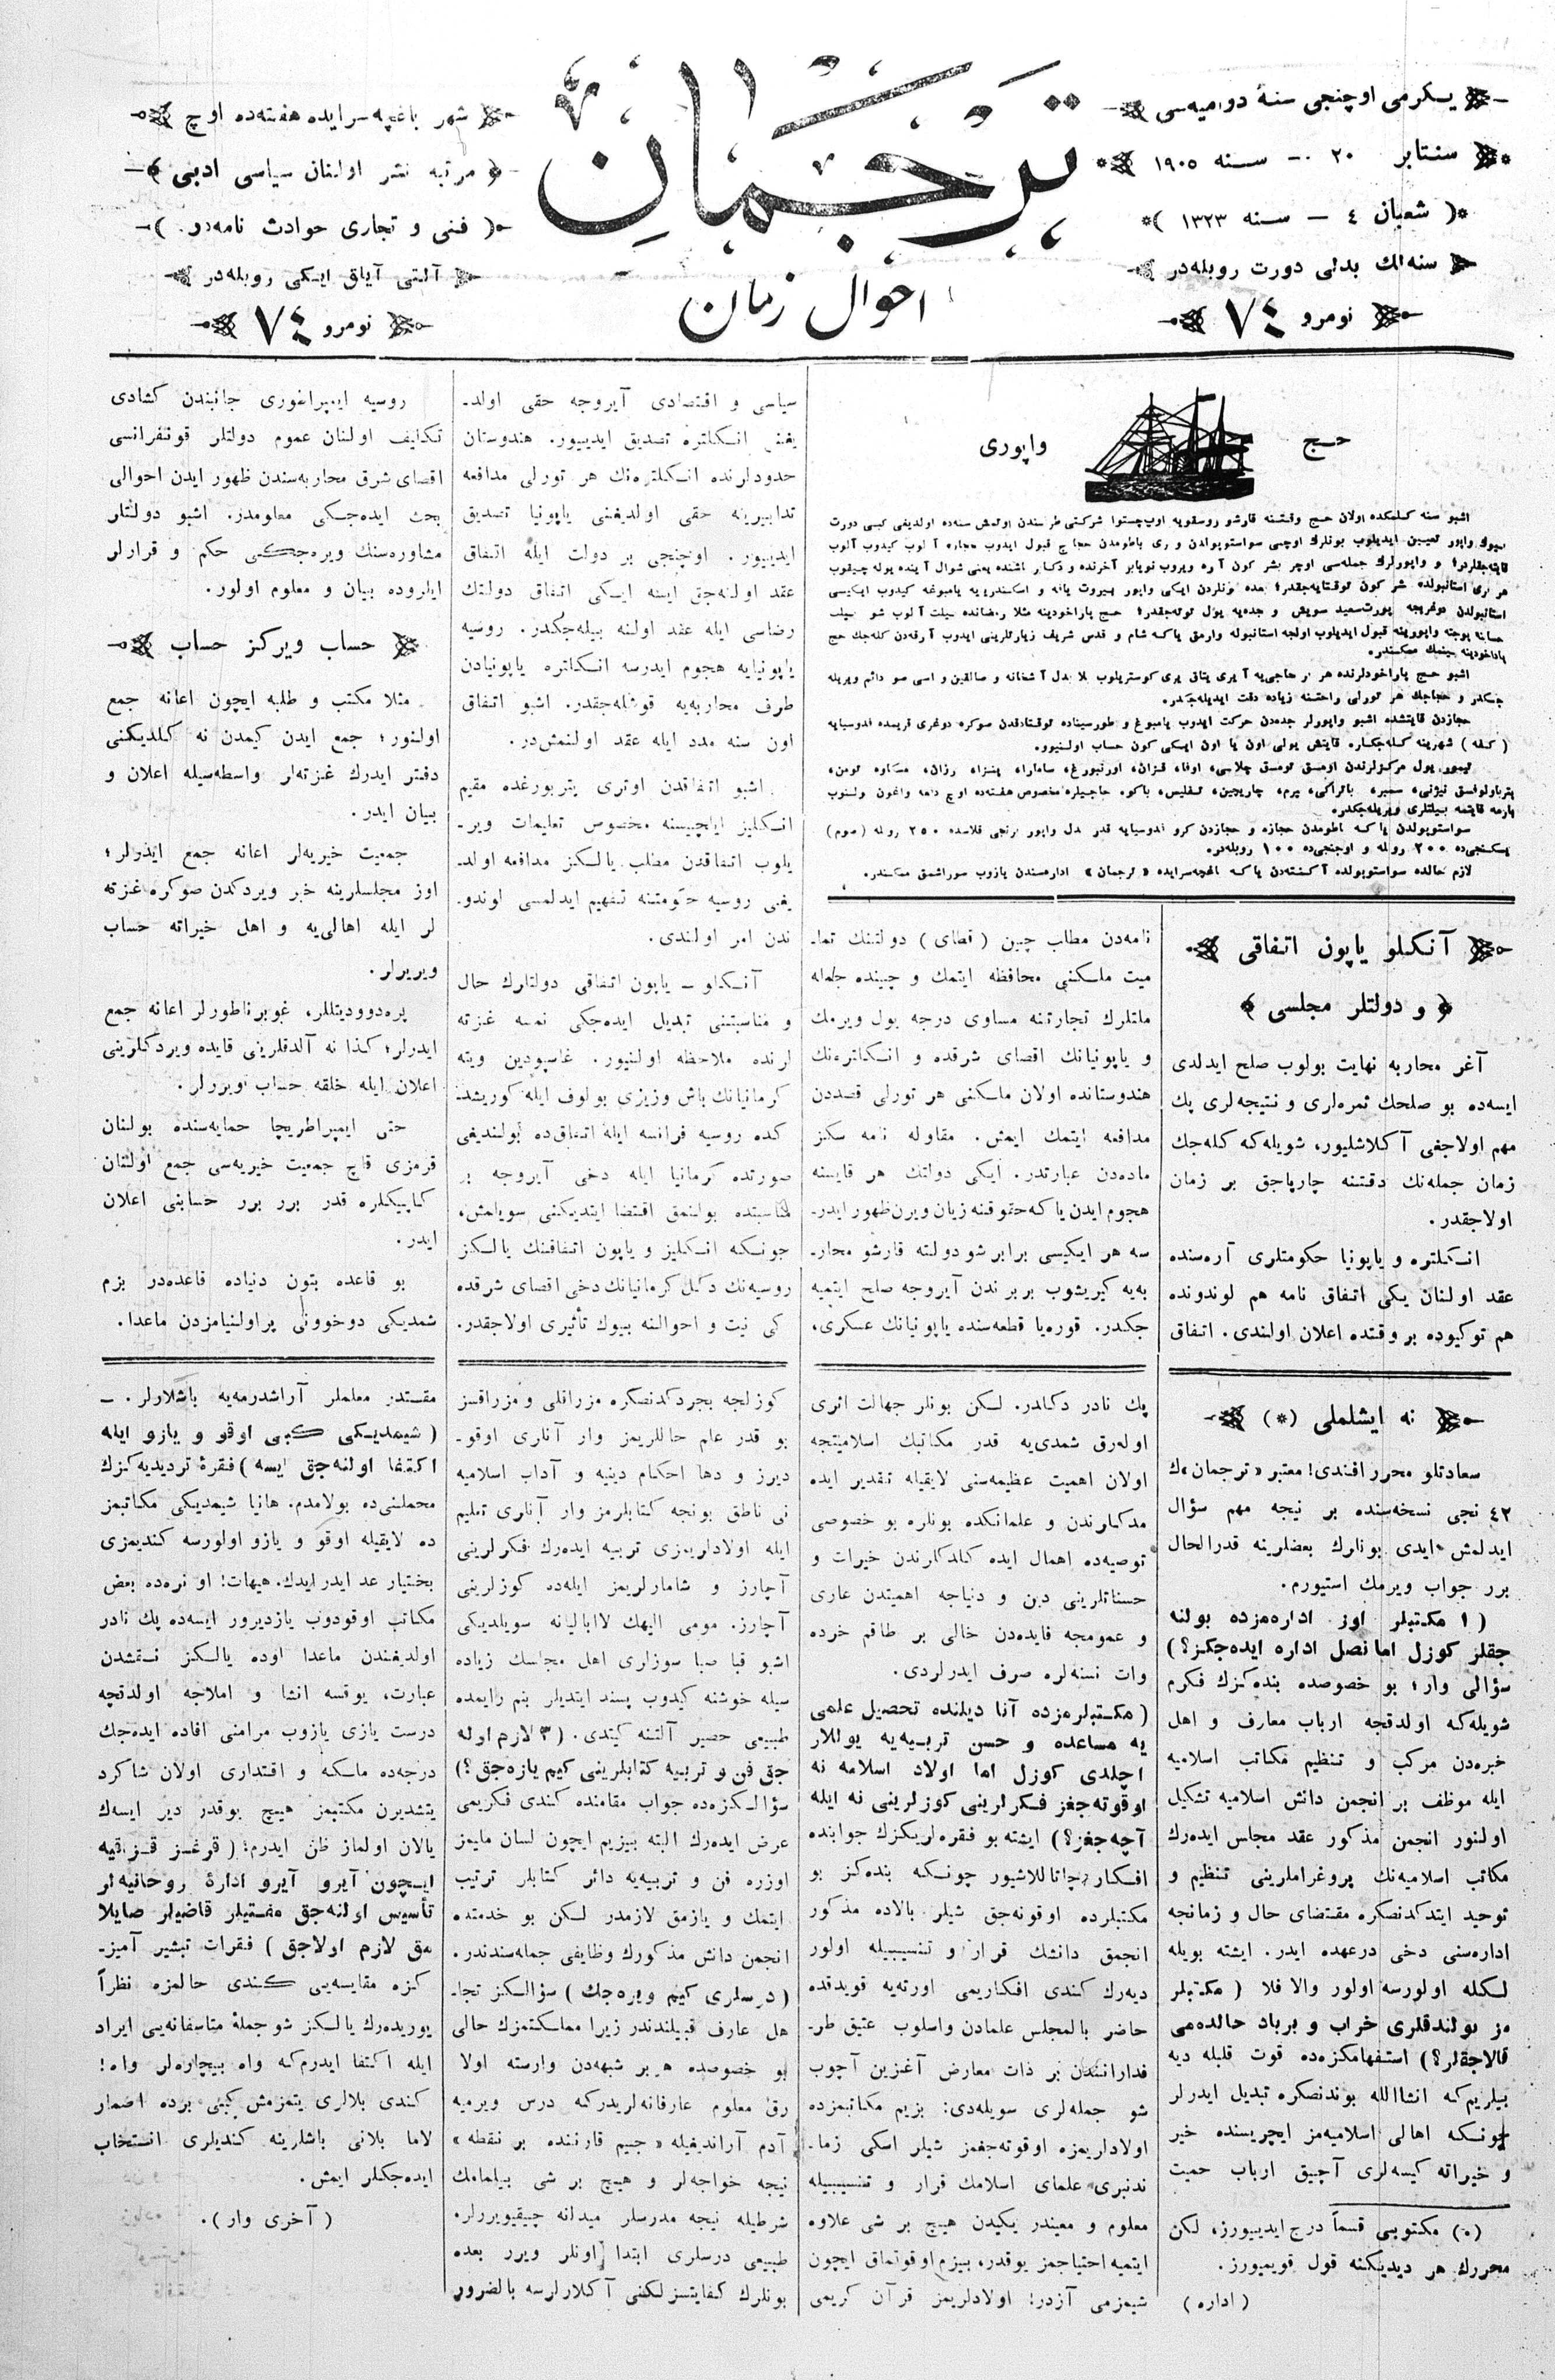 يكرمى اوچنجى سنۀ دواميه‌سى
سنتابر ٢٠ — سنه ١٩٠٥
( شعبان ٤ — سنه ١٣٢٣ )
سنه‌لك بدلى دورت روبله‌در
نومرو ٧٤
ترجمان
احوال زمان
شهر باغچه‌سرايده هفته‌ده اوچ
مرتبه نشر اولنان سياسى ادبى
( فنى و تجارى حوادث نامه‌در )
آلتى آياق ايكى روبله‌در
نومرو ٧٤
حج واپورى
لازم حالده سواستوپولده آكنته‌دن ياكه باغچه‌سرايده « ترجمان » اداره‌سندن يازوب سوراشمق ممكندر.
آنكلو ياپون اتفاقى
﴿ و دولتلر مجلسى ﴾
آغر محاربه نهايت بولوب صلح ايدلدى
ايسه‌ده بو صلحك ثمره‌لرى و نتيجه‌لرى پك
مهم اولاجغى آكلاشليور، شويله‌كه كله‌جك
زمان جمله‌نك دقتنه چارپاجق بر زمان
اولاجقدر.
انكلتره و ياپونيا حكومتلرى آره‌سنده
عقد اولنان يكى اتفاق نامه هم لوندونده
هم توكيوده بر وقتده اعلان اولندى. اتفاق
نامه‌دن مطلب چين ( قطاى ) دولتنك تما-
ميت ملكنى محافظه ايتمك و چينده جمله
ملتلرك تجارتنه مساوى درجه يول ويرمك
و ياپونيانك اقصاى شرقده و انكلتره‌نك
هندوستانده اولان ملكنى هر تورلى قصددن
مدافعه ايتمك ايمش. مقاوله نامه سكز
ماده‌دن عبارتدر. ايكى دولتك هر قايسنه
هجوم ايدن ياكه حقوقنه زيان ويرن ظهور ايدر-
سه هر ايكيسى برابر شو دولته قارشو محار-
به‌يه كيريشوب بربرندن آيروجه صلح ايتميه
جكدر. قوره‌يا قطعه‌سنده ياپونيانك عسكرى،
سياسى و اقتصادى آيروجه حقى اولد-
يغنى انكلتره تصديق ايدييور. هندوستان
حدودلرنده انكلتره‌نك هر تورلى مدافعه
تدابيرينه حقى اولديغنى ياپونيا تصديق
ايدييور. اوچنجى بر دولت ايله اتفاق
عقد اولنه‌جق ايسه ايكى اتفاق دولتك
رضاسى ايله عقد اولنه بيله‌جكدر. روسيه
ياپونيايه هجوم ايدرسه انكلتره ياپونيادن
طرف محاربه‌يه قوشله‌جقدر. اشبو اتفاق
اون سنه مدد ايله عقد اولنمش‌در.
اشبو اتفاقدن اوترى پتربورغده مقيم
انكليز ايلچيسنه مخصوص تعليمات وير-
يلوب اتفاقدن مطلب يالكز مدافعه اولد-
يغى روسيه حكومتنه تفهيم ايدلمسى لوندو-
ندن امر اولندى.
آنكلو — ياپون اتفاقى دولتلرك حال
و مناسبتنى تبديل ايده‌جكى نمسه غزته
لرنده ملاحظه اولنيور. غاسپودين ويته
كرمانيانك باش وزيرى بولوف ايله كوريشد-
كده روسيه فرانسه ايله اتفاق‌ده بولنديغى
صورتده كرمانيا ايله دخى آيروجه بر
مناسبتده بولنمق اقتضا ايتديكنى سويلمش،
چونكه انكليز و ياپون اتفاقنك يالكز
روسيه‌نك دكل كرمانيانك دخى اقصاى شرقده
كى نيت و احوالنه بيوك تأثيرى اولاجقدر.
روسيه ايمپراطورى جانبندن كشادى
تكليف اولنان عموم دولتلر قونفرانسى
اقصاى شرق محاربه‌سندن ظهور ايدن احوالى
بحث ايده‌جكى معلومدر. اشبو دولتلر
مشاوره‌سنك ويره‌جكى حكم و قرارلر
ايلروده بيان و معلوم اولور.
حساب ويركز حساب
مثلا مكتب و طلبه ايچون اعانه جمع
اولنور؛ جمع ايدن كيمدن نه كلديكنى
دفتر ايدرك غزته‌لر واسطه‌سيله اعلان و
بيان ايدر.
جمعيت خيريه‌لر اعانه جمع ايدرلر؛
اوز مجلسلرينه خبر ويردكدن صوكره غزته
لر ايله اهالى‌يه و اهل خيراته حساب
ويريرلر.
پره‌دووديتللر، غوبرناطورلر اعانه جمع
ايدرلر؛ كذا نه آلدقلرينى قايده ويردكلرينى
اعلان ايله خلقه حساب ويررلر.
حتى ايمپراطريچا حمايه‌سنده بولنان
قرمزى قاچ جمعيت خيريه‌سى جمع اولنان
كاپيكلره قدر برر برر حسابنى اعلان
ايدر.
بو قاعده بتون دنياده قاعده‌در بزم
شمديكى دوخوونى پراولنيامزدن ماعدا.
نه ايشلملى (*)
سعادتلو محرر افندى! معتبر « ترجمان »ك
٤٢ نجى نسخه‌سنده بر نيجه مهم سؤال
ايدلمش ايدى بونلرك بعضلرينه قدرالحال
برر جواب ويرمك استيورم.
( ١ مكتبلر اوز اداره‌مزده بولنه
جقلر كوزل اما نصل اداره ايده‌جكز؟ )
سؤالى وار؛ بو خصوصده بنده‌كزك فكرم
شويله‌كه اولدقجه ارباب معارف و اهل
خبره‌دن مركب و تنظيم مكاتب اسلاميه
ايله موظف بر انجمن دانش اسلاميه تشكيل
اولنور انجمن مذكور عقد مجلس ايده‌رك
مكاتب اسلاميه‌نك پروغراملرينى تنظيم و
توحيد ايتدكدنصكره مقتضاى حال و زمانجه
اداره‌سنى دخى درعهده ايدر. ايشته بويله
لكله اولورسه اولور والا فلا ( مكتبلر
مز بولندقلرى خراب و برباد حالده‌مى
قالاجقلر؟ ) استفهامكزه‌ده قوت قلبله ديه
بيلريم‌كه انشاالله بوندنصكره تبديل ايدرلر
چونكه اهالى اسلاميه‌مز ايچريسنده خير
و خيراته كيسه‌لرى آچيق ارباب حميت
(*) مكتوبى قسماً درج ايدييورز، لكن
محررك هر ديديكنه قول قويميورز.
( اداره )
پك نادر دكلدر. لكن بونلر جهالت اثرى
اوله‌رق شمدى‌يه قدر مكاتبك اسلاميتجه
اولان اهميت عظيمه‌سنى لايقيله تقدير ايده
مدكلرندن و علمانكده بونلره بو خصوصى
توصيه‌ده اهمال ايده كلدكلرندن خيرات و
حسناتلرينى دين و دنياجه اهميتدن عارى
و عمومجه فايده‌دن خالى بر طاقم خرده
وات نسنه‌لره صرف ايدرلردى.
( مكتبلرمزده آنا ديلنده تحصيل علمى
يه مساعده و حسن تربيه‌يه يوللار
اچلدى كوزل اما اولاد اسلامه نه
اوقوته‌جغز فكرلرينى كوزلرينى نه ايله
آچه‌جغز؟ ) ايشته بو فقره‌لريكزك جوابنده
افكار چاتاللاشيور چونكه بنده‌كز بو
مكتبلرده اوقونه‌جق شيلر بالاده مذكور
انجمن دانشك قرار و تنسيبيله اولور
ديه‌رك كندى افكاريمى اورته‌يه قويدقده
حاضر بالمجلس علمادن واسلوب عتيق طر-
فدارانندن بر ذات معارض آغزين آچوب
شو جمله‌لرى سويله‌دى: بزيم مكاتبمزده
اولادلريمزه اوقوته‌جغمز شيلر اسكى زما-
ندنبرى علماى اسلامك قرار و تنسيبيله
معلوم و معيندر يكيدن هيچ بر شى علاوه
ايتميه احتياجمز يوقدر، بيزم اوقوتماق ايچون
شيمزمى آزدر! اولادلريمز قرآن كريمى
كوزلجه بجردكدنصكره مزراقلى و مزراقسز
بو قدر علم حاللريمز وار آنلرى اوقو-
ديرز و دها احكام دينيه و آداب اسلاميه
نى ناطق بونجه كتابلرمز وار آنلرى تعليم
ايله اولادلريمزى تربيه ايده‌رك فكرلرينى
آچارز و شامارلريمز ايله‌ده كوزلرينى
آچارز. مومى اليهك لااباليانه سويلديكى
اشبو قبا صبا سوزلرى اهل مجلسك زياده
سيله خوشنه كيدوب پسند ايتديلر بنم رايمده
طبيعى حصير آلتنه كيتدى. ( ٣ لازم اوله
جق فن و تربيه كتابلرينى كيم يازه‌جق؟ )
سؤالكزه‌ده جواب مقامنده كندى فكريمى
عرض ايده‌رك البته بيزيم ايچون لسان مليمز
اوزره فن و تربيه‌يه دائر كتابلر ترتيب
ايتمك و يازمق لازمدر لكن بو خدمتده
انجمن دانش مذكورك وظايفى جمله‌سندندر.
( درسلرى كيم ويره‌جك ) سؤالكز تجا-
هل عارف قبيلندندر زيرا مملكتمزك حالى
بو خصوصده هر بر شبهه‌دن وارسته اولا
رق معلوم عارفانه‌لريدركه درس ويرميه
آدم آرانديغيله « جيم قارننده بر نقطه »
نيجه خواجه‌لر و هيچ بر شى بيلمامك
شرطيله نيجه مدرسلر ميدانه چيقيويررلر.
طبيعى درسلرى ابتدا اونلر ويرر بعده
بونلرك كفايتسزلكنى آكلارلرسه بالضرور
مقتدر معلملر آراشدرمه‌يه باشلارلر. —
( شيمديكى كبى اوقو و يازو ايله
اكتفا اولنه‌جق ايسه ) فقرۀ ترديديه‌كزك
محملنى‌ده بولامدم. هانيا شيمديكى مكاتبمز
ده لايقيله اوقو و يازو اولورسه كنديمزى
بختيار عد ايدر ايدك. هيهات! او نره‌ده بعض
مكاتب اوقودوب يازديرور ايسه‌ده پك نادر
اولديغندن ماعدا اوده يالكز نقشدن
عبارت، يوقسه انشا و املاجه اولدقچه
درست يازى يازوب مرامنى افاده ايده‌جك
درجه‌ده ملكه و اقتدارى اولان شاكرد
يتشديرن مكتبمز هيچ يوقدر دير ايسه‌ك
يالان اولماز ظن ايدرم؛ ( قرغز قزاقيه
ايچون آيرو آيرو ادارۀ روحانيه‌لر
تأسيس اولنه‌جق مفتيلر قاضيلر صايلا
مق لازم اولاجق ) فقرات تبشير آميز-
كزه مقايسه‌يى كندى حالمزه نظراً
يوريده‌رك يالكز شو جملۀ متاسفانه‌يى ايراد
ايله اكتفا ايدرم‌كه واه بيچاره‌لر واه!
كندى بلالرى يتمزمش كبى برده اضمار
لاما بلانى باشلرينه كنديلرى انتخاب
ايده‌جكلر ايمش.
( آخرى وار ).